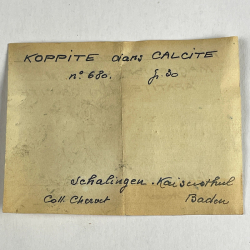 KOPPITE dans CALCITE
n° 680. f. 30
Schalingen. Kaiserthul
Coll Cheront Baden